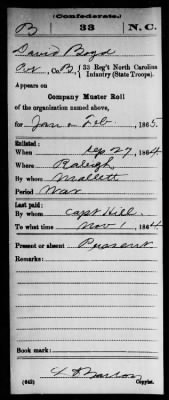 (Confederate.)
B 33 N.C.
David Boyd
Pvt, Co. B, 33 Reg't North Carolina
Infantry (State Troops).
Appears on
Company Muster Roll
of the organization named above,
for Jan & Feb, 1865.
Enlisted:
When Sep 27, 1864
Where Raleigh
By whom Mallett
Period War
Last paid:
By whom Capt Hill.
To what time Nov 1, 1864
Present or absent Present
Remarks:
Book mark:
(642) Copyist.